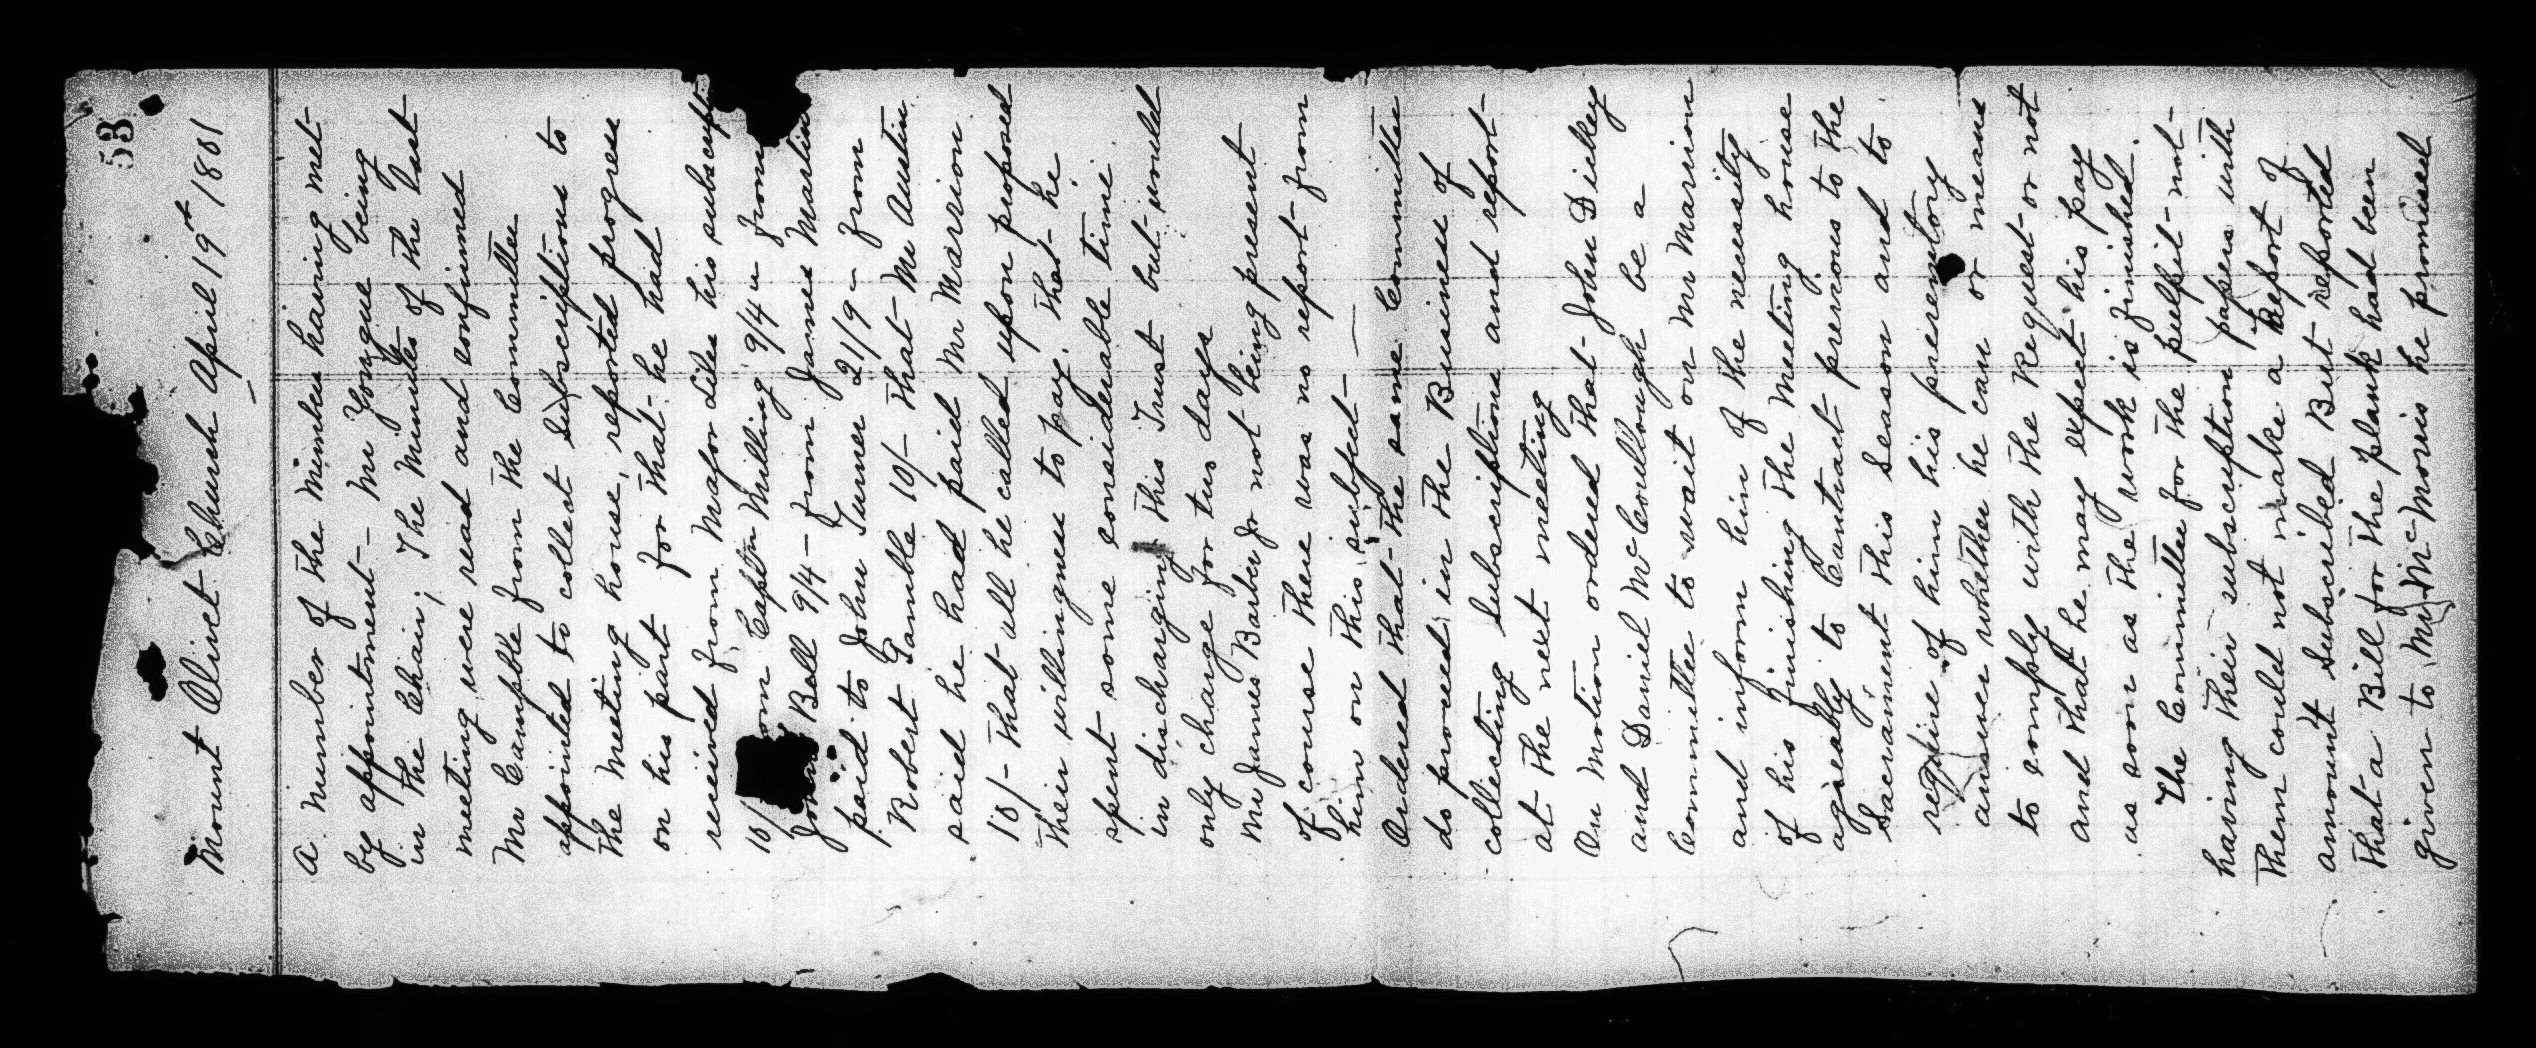 53
Mount Olivet Church April 19th 1801
A Number of the Members having met
by appointment — Mr Yongue being
in the Chair; The Minutes of the last
meeting were read and confirmed
Mr Campble from the Committee
appointed to collect Subscriptions to
the Meeting house, reported progress
on his part for that he had
received from Major Liles his subscript
10/ from Captn Milling 9/4 " from
Bell 9/4 — from James Martin
paid to John Turner 21/9 — from
Robert Gamble 10/— that Mr Austin
said he had paid Mr Marrion
10/— that all he called upon proposed
their willingness to pay. that he
spent some considerable time
in discharging this Trust but would
only charge for two days
Mr James Barber Jr not being present
of course there was no report from
him on this subject —
Ordered that the same Committee
do proceed in the Business of
collecting Subscriptions and report
at the next meeting
On Motion ordered that John Dickey
and Daniel McCoullough be a
Committee to wait on Mr Marrion
and inform him of the necessity
of his finishing the Meeting house
agreably to Contract previous to the
Sacrament this Season and to
require of him his preremtory
answer whether he can or means
to comply with the Request or not
and that he may expect his pay
as soon as the work is finished.
The Committee for the pulpit not
having their subscription papers with
them could not make a Report of
amount Subscribed But reported
that a Bill for the plank had been
given to Mr McMoris he promised